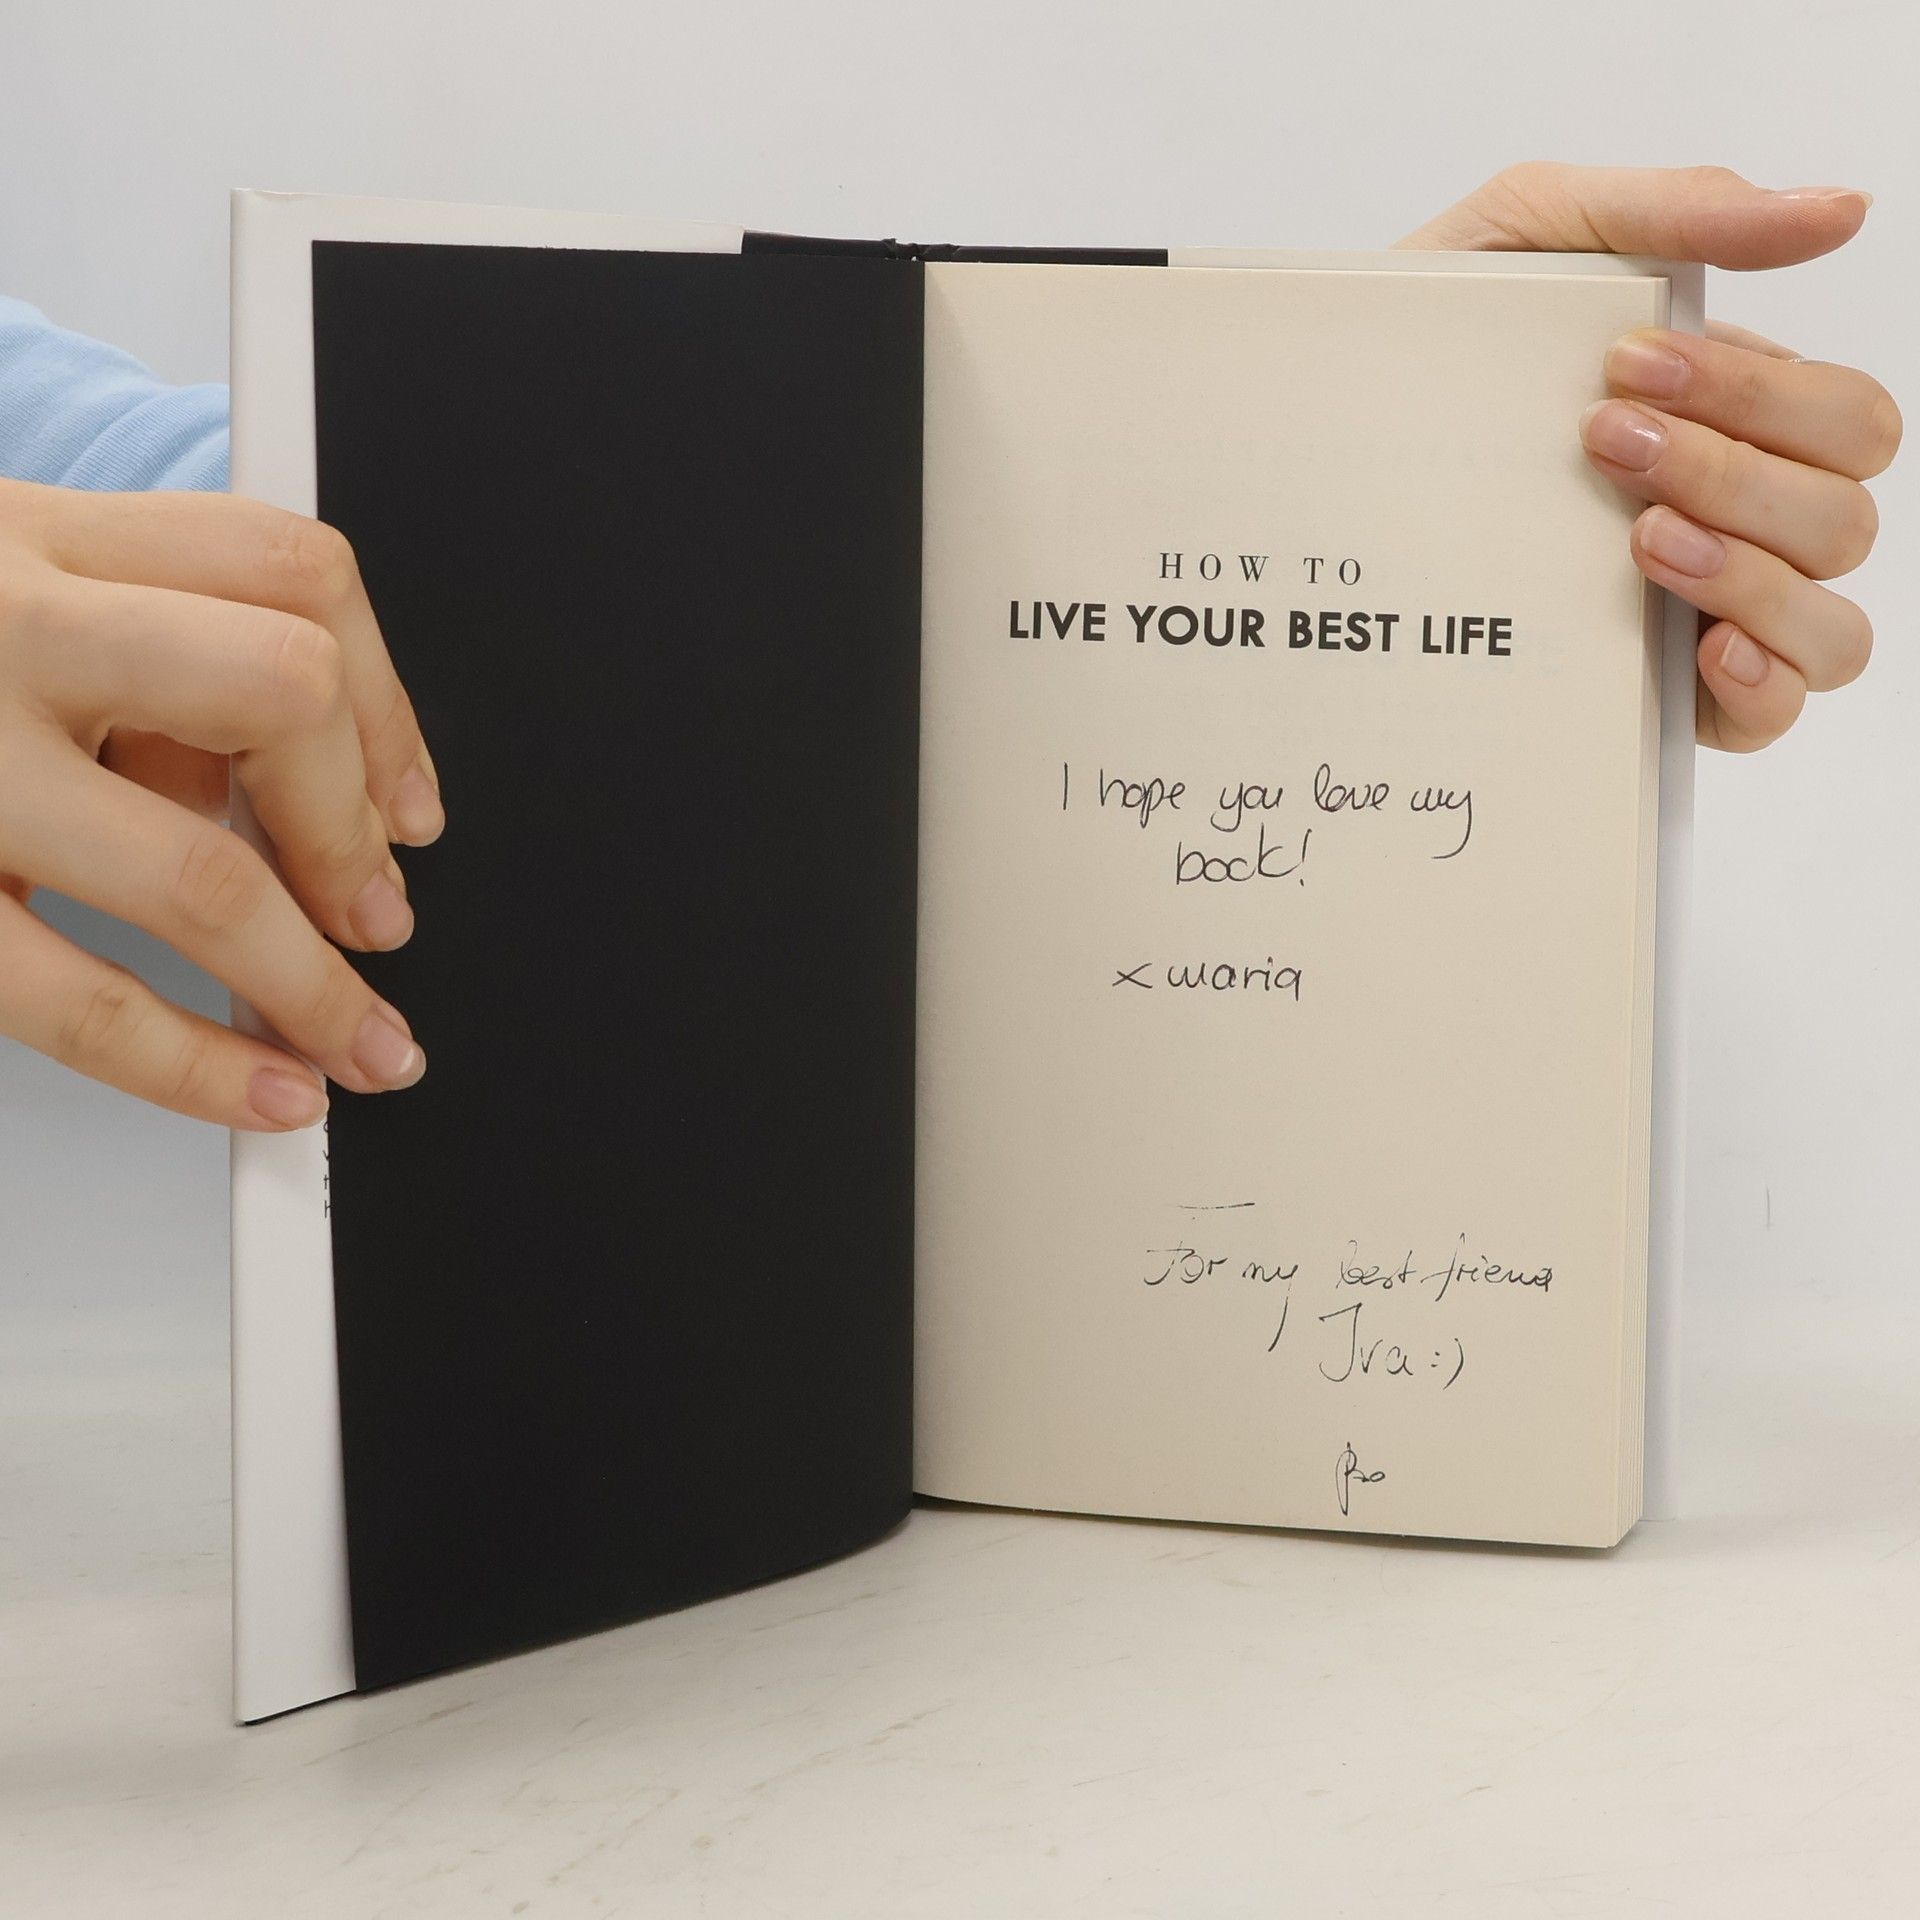 HOW TO
LIVE YOUR BEST LIFE
I hope you love my
book!
x maria
For my best friend
Iva :)